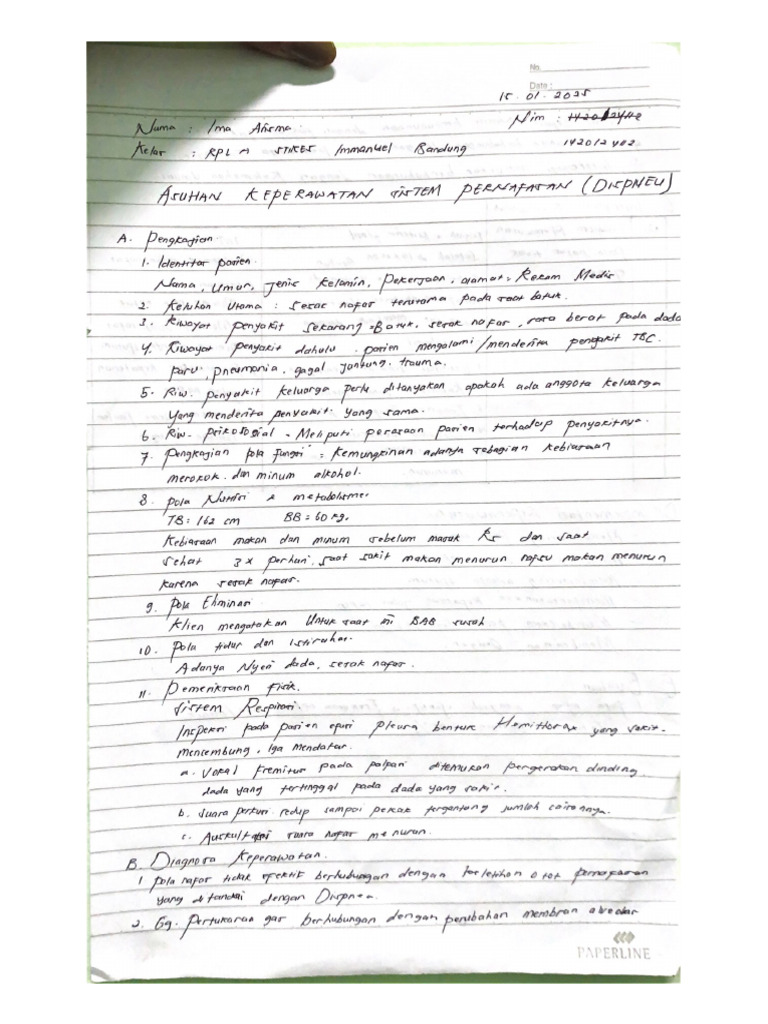 No.
Date :
15 . 01 . 2025
Nama : Ima Arisma Nim : 142012402
Kelas : RPL A STIKES Immanuel Bandung 142012402
ASUHAN KEPERAWATAN SISTEM PERNAFASAN (DISPNEU)
A. Pengkajian
1. Identitas pasien.
Nama, Umur, Jenis Kelamin, Pekerjaan, alamat, Rekam Medis
2. Keluhan Utama : sesac nafas terutama pada saat batuk.
3. Riwayat penyakit sekarang = Batuk, sesak nafas, rasa berat pada dada
4. Riwayat penyakit dahulu. pasien mengalami/menderita penyakit TBC
paru, pneumonia, gagal jantung, trauma.
5. Riw. penyakit keluarga perlu ditanyakan apakah ada anggota keluarga
Yang menderita penyakit yang sama.
6. Riw. psikososial - Meliputi perasaan pasien terhadap penyakitnya.
7. Pengkajian pola fungsi = Kemungkinan adanya sebagian kebiasaan
merokok dan minum alkohol.
8. Pola Nutrisi & metabolisme.
TB = 162 cm BB = 60 kg.
Kebiasaan makan dan minum sebelum masuk Rs dan saat
sehat 3x perhari, saat sakit makan menurun nafsu makan menurun
karena sesak nafas.
9. Pola Eliminasi
Klien mengatakan Untuk saat ini BAB susah
10. Pola tidur dan Istirahat.
Adanya Nyeri dada, sesak nafas.
11. Pemeriksaan Fisik.
Sistem Respirasi.
Inspeksi pada pasien efusi Pleura bentuk Hemithorax yang sakit.
mencembung, Iga Mendatar.
a. Vokal Fremitus pada palpasi ditemukan pergerakan dinding
dada yang tertinggal pada dada yang sakit.
b. Suara perkusi redup sampai pekak tergantung jumlah cairannya.
c. Auskultasi suara nafas menurun.
B. Diagnosa Keperawatan.
1 pola nafas tidak efektif berhubungan dengan keletihan otot pernafasan
yang ditandai dengan Dispnea.
2. Gg. Pertukaran gas berhubungan dengan perubahan membran alveolar
PAPERLINE